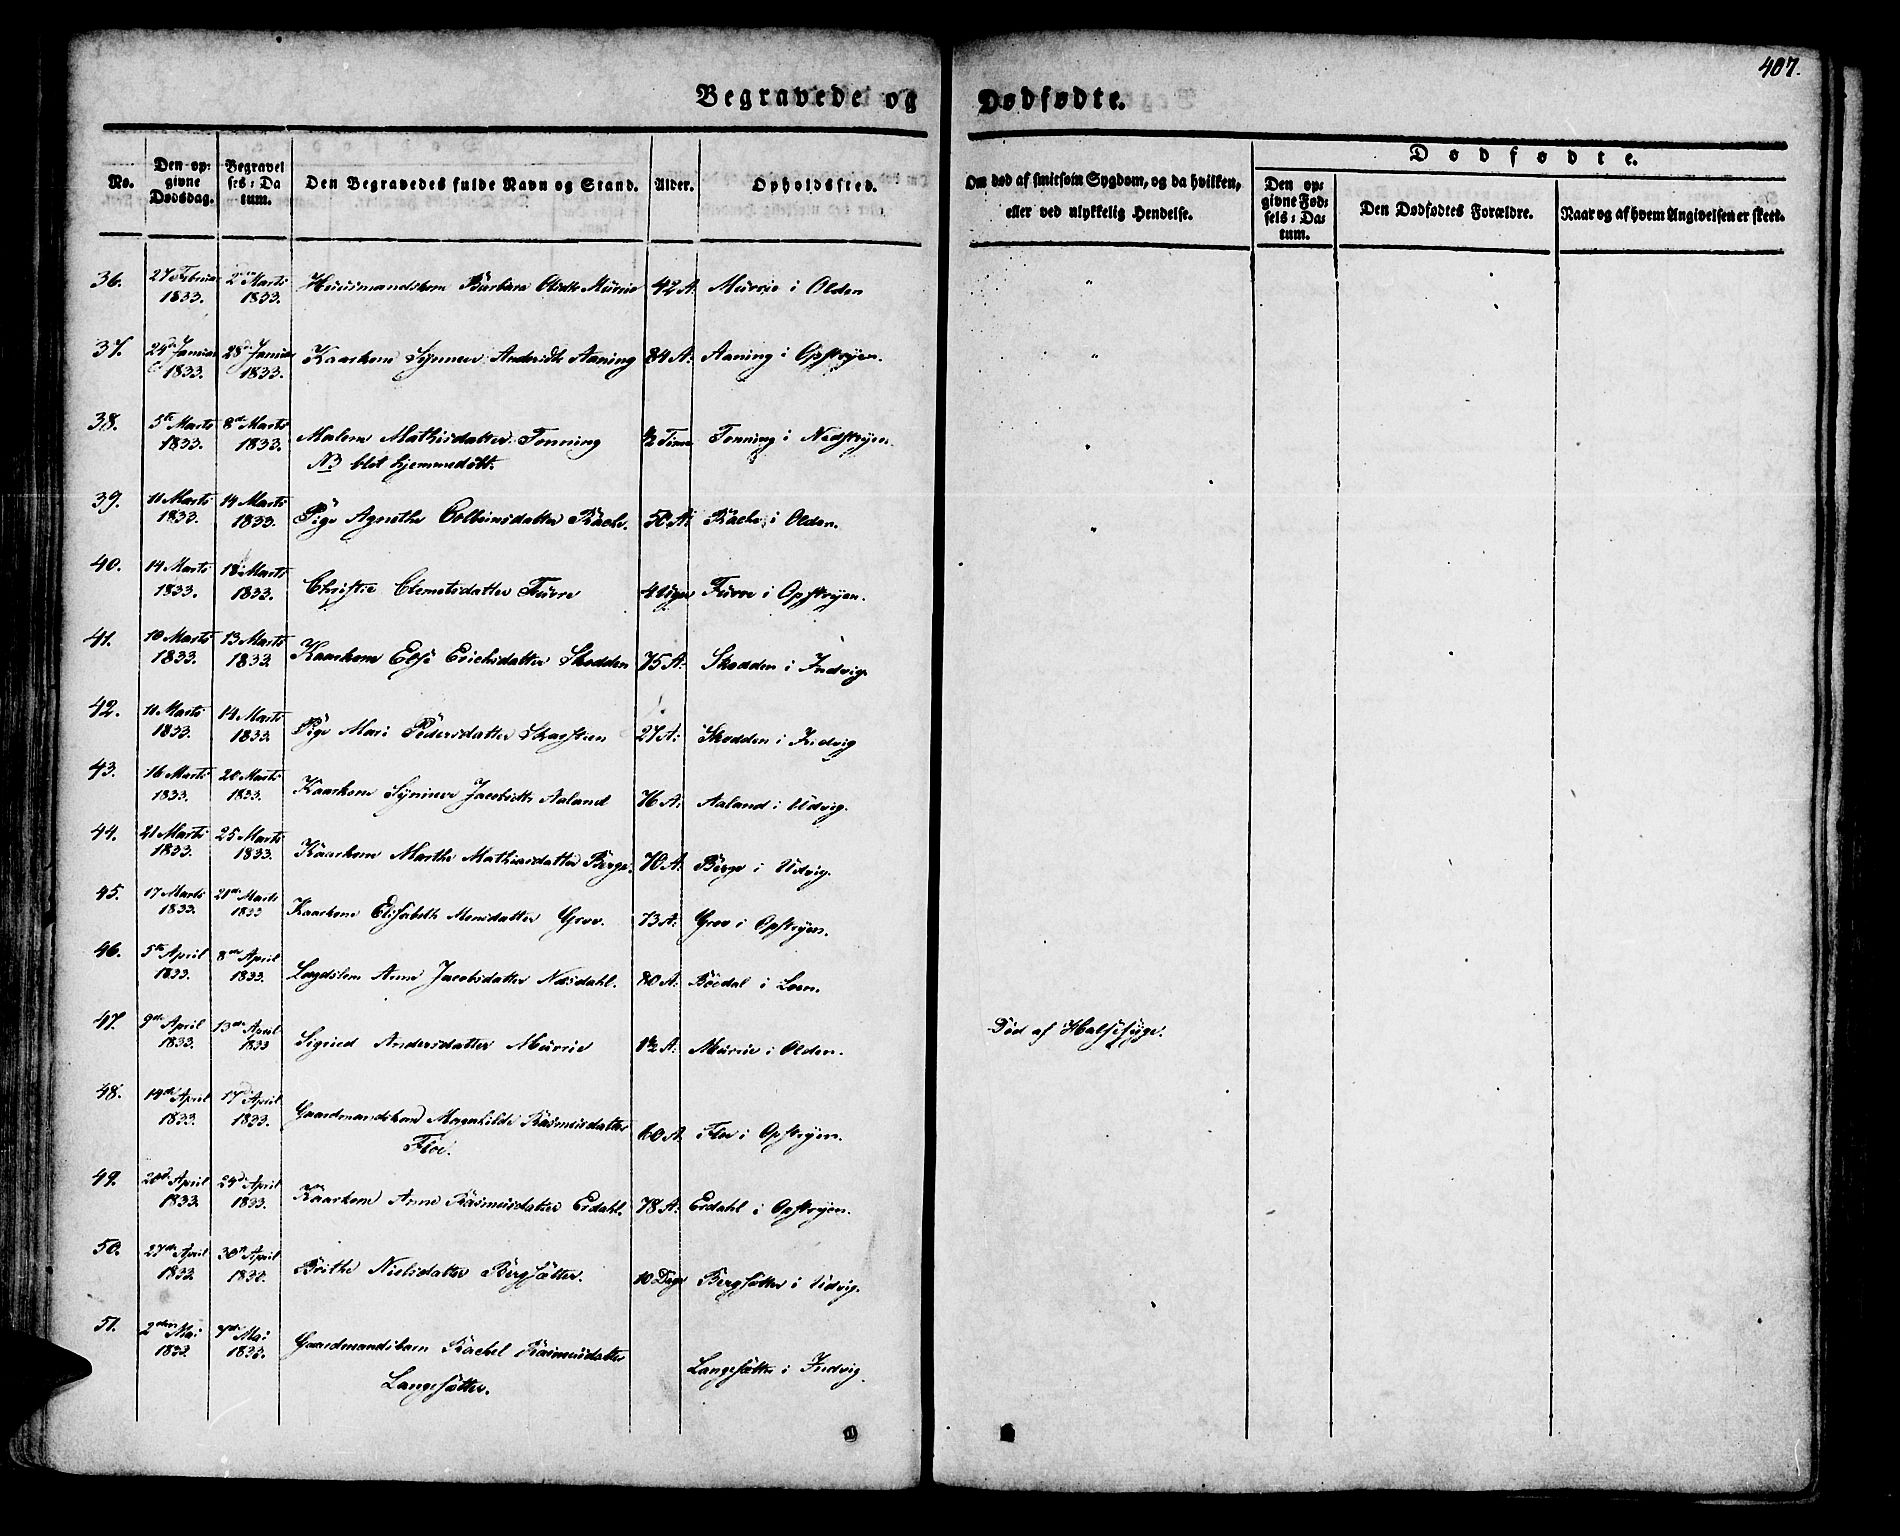 407.
Begravede og Dødfødte.
No.
Den op-
givne
Dødsdag.
Begravel
ses-Da
tum.
Den Begravedes fulde Navn og Stand.
Alder.
Opholdssted.
Om død af smitsom Sygdom, og da hvilken,
eller ved ulykkelig Hendelse.
Dødfødte.
Den op-
givne Fød-
sels-Da-
tum.
Den Dødfødtes Forældre.
Naar og af hvem Angivelsen er skeed.
36. 27 Februar 1833. 2den Marts 1833. Huusmandskone Barbara Olsdtr Murrie 42 A. Murrie i Olden "
37. 24de Januar 1833. 28de Januar 1833. Kaarkone Synneve Andersdtr Aaning 84 A. Aaning i Opstryen. "
38. 5te Marts 1833. 8de Marts 1833. Malene Mathisdatter Tonning ½ Time Tonning i Nedstryen "
NB blot hjemmedøbt.
39. 11 Marts 1833. 14 Marts 1833. Pige Agnethe Colbeinsdatter Rache. 50 A. Rache i Olden. "
40. 14 Marts 1833. 18 Marts 1833. Christie Clemetsdatter Furre 4 Uger Furre i Opstryen.
41. 10 Marts 1833. 13 Marts 1833. Kaarkone Else Erichsdatter Skodden 75 A. Skodden i Indvig.
42. 11 Marts 1833. 14 Marts 1833. Pige Mari Pedersdatter Skagsteen 27 A. Skodden i Indvig
43. 16 Marts 1833. 20 Marts 1833. Kaarkone Synneve Jacobsdtr Aaland 76 A. Aaland i Udvig.
44. 21 Marts 1833. 25 Marts 1833. Kaarkone Marthe Mathiasdatter Berge. 70 A. Berge i Udvig.
45. 17 Marts 1833. 21de Marts 1833 Kaarkone Elisabeth Monsdatter Grov. 73 A. Grov i Opstryen.
46. 5te April 1833. 8de April 1833. Lægdslem Anne Jacobsdatter Næsdahl. 80 A. Bødal i Loen.
47. 9de April 1833. 13de April 1833 Sigried Andersdatter Murrie 1½ A. Murrie i Olden. Død af Halssyge.
48. 14de April 1833. 17 April 1833. Gaardmandskone Magnhilde Rasmusdatter 60 A. Floe i Opstryen.
Floe.
49. 20de April 1833. 24de April 1833. Kaarkone Anne Rasmusdatter Erdahl. 78 A. Erdahl i Opstryen.
50. 27de April 1833. 30te April 1833. Brithe Nielsdatter Bergsætter. 10 Dage Bergsætter i Udvig.
51. 2den Mai 1833. 7de Mai 1833. Gaardmandsbarn Rachel Rasmusdatter Langesætter i Indvig.
Langesætter.